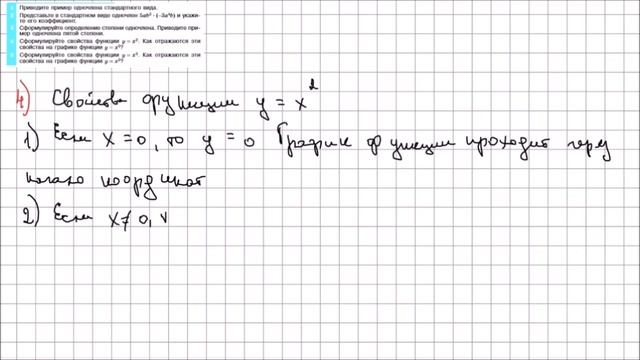 1 Приведите пример одночлена стандартного вида.
2 Представьте в стандартном виде одночлен 5ab² · (–3a³b) и укажи-
те его коэффициент.
3 Сформулируйте определение степени одночлена. Приведите при-
мер одночлена пятой степени.
4 Сформулируйте свойства функции y = x². Как отражаются эти
свойства на графике функции y = x²?
5 Сформулируйте свойства функции y = x³. Как отражаются эти
свойства на графике функции y = x³?
4) Свойства функции y = x²
1) Если x = 0, то y = 0 График функции проходит через
начало координат
2) Если x ≠ 0,